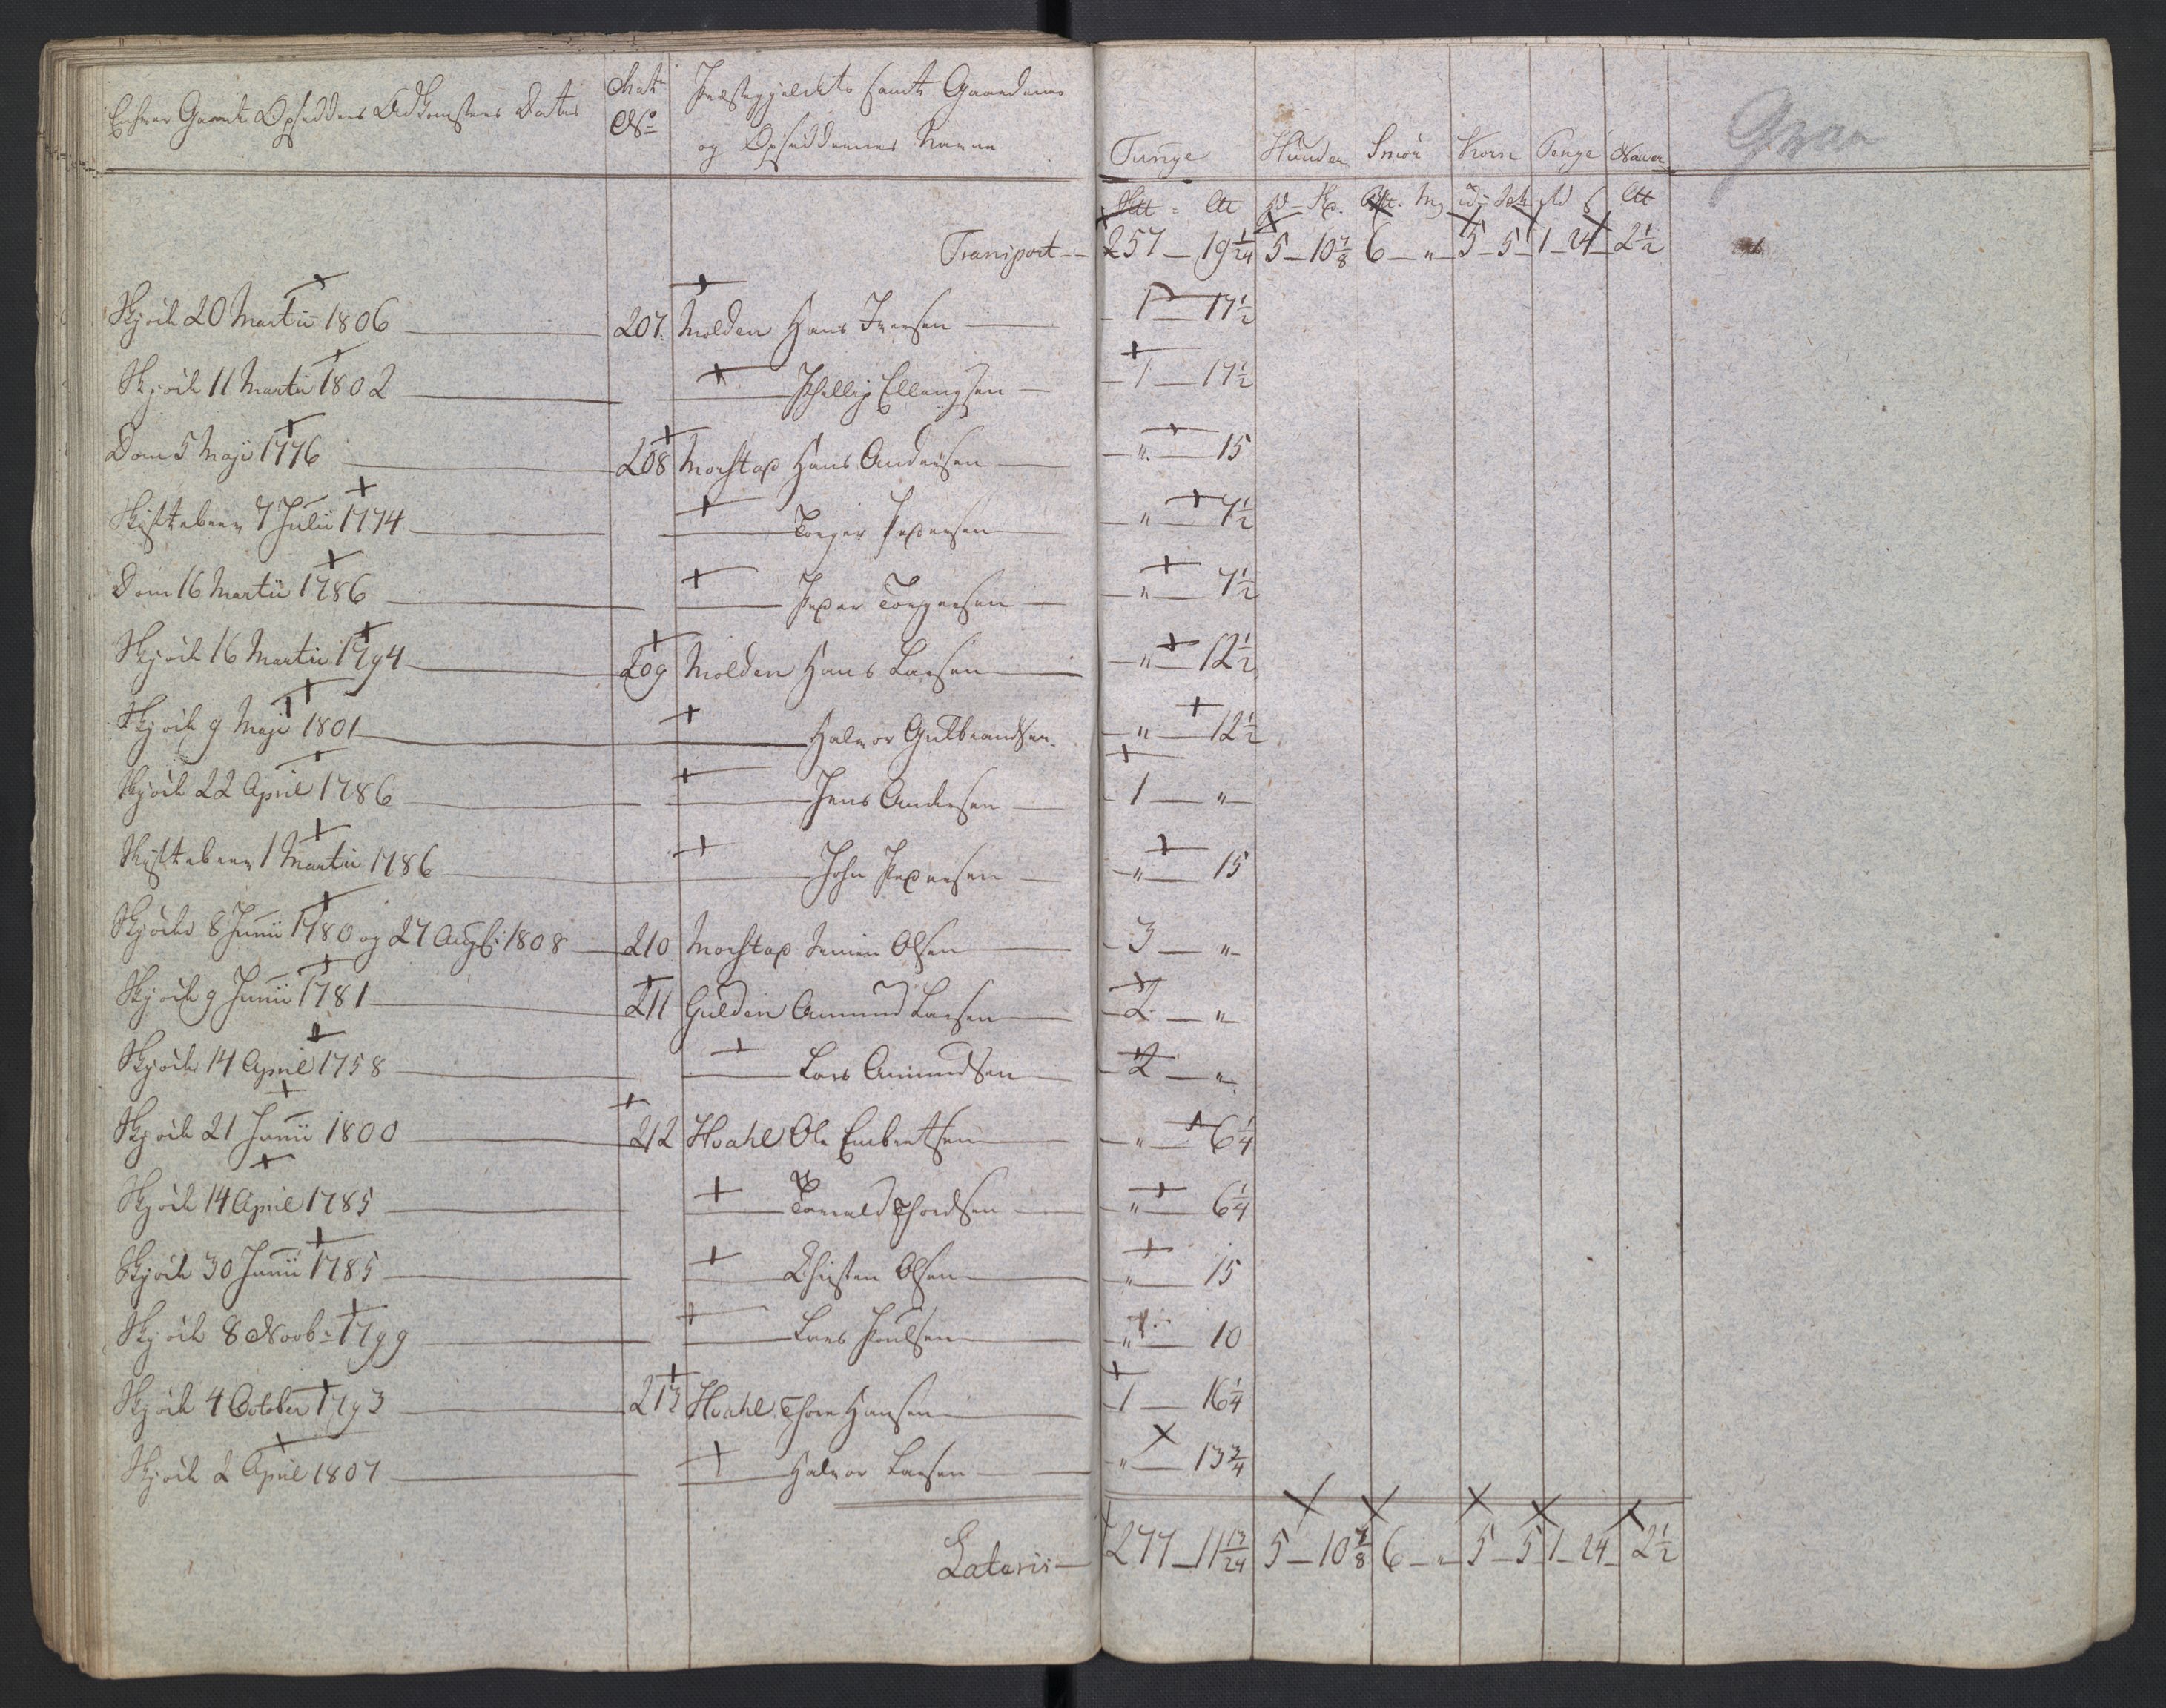 Enhver Gaards Opsidders Adkomsters Datus
Matr
No
Præstegjeldets samt Gaardenes
og Opsiddernes Navne
Tunge Huuder Smör Korn Penge
Gran
Transport -- 257 - 19 1/24 5 - 10 7/8 6 - " - 5 - 5 1 - 24 - 2 1/2
Skjöde 20 Martii 1806 207. Molden Hans Iversen 1 - 17 1/2
Skjöde 11 Martii 1802 Phillip Ellengsen 1 - 17 1/2
Dom 5 Maji 1776 208 Morstad Hans Andersen " - 15
Skiftebrev 7 Julii 1774 Torger Pedersen " - 7 1/2
Dom 16 Martii 1786 Peder Torgersen " - 7 1/2
Skjöde 16 Martii 1794 209 Molden Hans Larsen " - 12 1/2
Skjöde 9 Maji 1801 Halvor Gulbrandsen " - 12 1/2
Skjöde 22 April 1786 Jens Andersen 1 - "
Skiftebrev 1 Martii 1786 John Pedersen " - 15
Skjöder 8 Junii 1780 og 27 Augs: 1808 210 Morstad Olsen 3 - "
Skjöde 9 Junii 1781 211 Gulden Amund Larsen 2 - "
Skjöde 14 April 1758 Lars Amundsen 2 - "
Skjöde 21 Junii 1800 212 Hvahl Ole Embretsen " - 6 1/4
Skjöde 14 April 1785 Torvald Thordsen " - 6 1/4
Skjöde 30 Junii 1785 Christen Olsen " - 15
Skjöde 8 Novbr 1799 Lars Poulsen " - 10
Skjöde 4 October 1793 213 Hvahl Thore Hansen 1 - 16 1/4
Skjöde 2 April 1807 Halvor Larsen " - 13 3/4
Lateris - 277 - 11 13/24 5 - 10 7/8 6 - " - 5 - 5 1 - 24 - 2 1/2